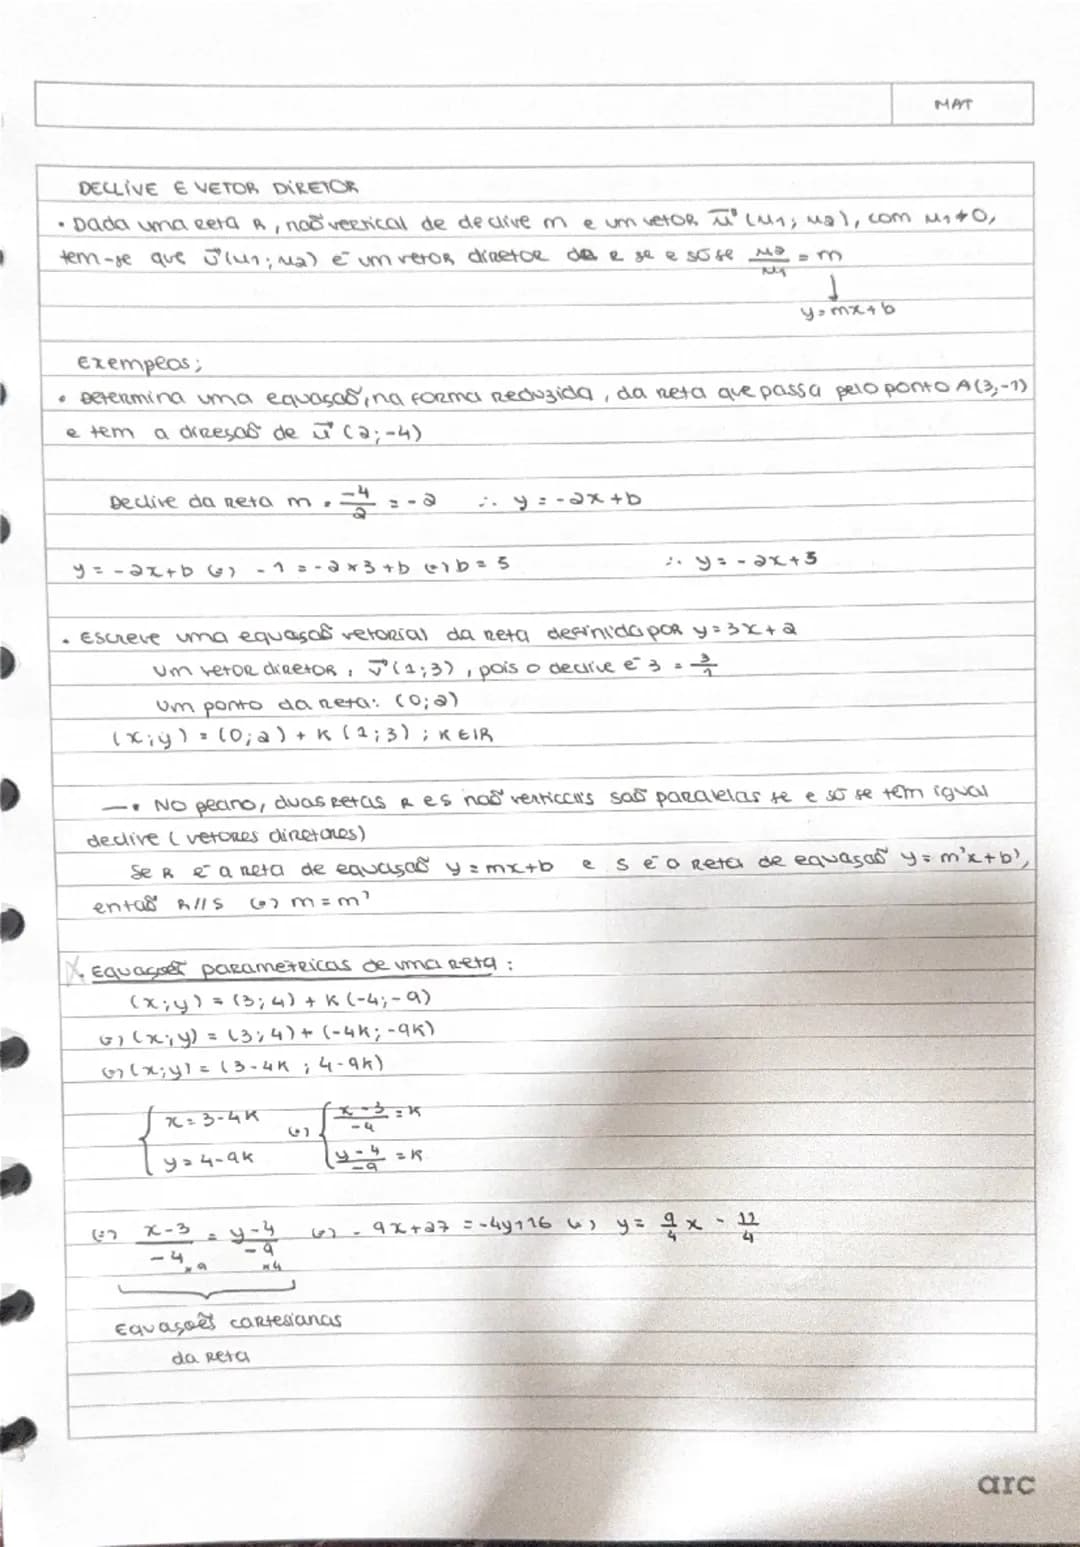 MAT
DECLIVE E VETOR DIRETOR
• Dada uma reta R, não vertical de declive m e um vetor u⃗ (u1; u2), com u1≠0,
tem-se que u⃗ (u1; u2) é um vetor diretor de R se e só se u2/u1 = m
↓
y=mx+b
Exemplos;
• Determina uma equação, na forma reduzida, da reta que passa pelo ponto A(3,-1)
e tem a direção de u⃗ (2;-4)
Declive da reta m = -4/2 = -2 ∴ y = -2x+b
y = -2x+b (=) -1 = -2×3+b (=) b = 5 ∴ y = -2x+5
• Escreve uma equação vetorial da reta definida por y=3x+2
Um vetor diretor: v⃗ (1;3), pois o declive é 3 = 3/1
Um ponto da reta: (0;2)
(x;y) = (0;2) + K (1;3) ; K ∈ IR
—• No plano, duas retas R e s não verticais são paralelas se e só se têm igual
declive (vetores diretores)
Se R é a reta de equação y = mx+b e s é a reta de equação y = m'x+b',
então R//S (=) m = m'
X. Equações parametricas de uma reta:
(x;y) = (3;4) + K (-4;-9)
(=) (x;y) = (3;4) + (-4K; -9K)
(=) (x;y) = (3-4K ; 4-9K)
{ x = 3-4K (=) { x-3/-4 = K
y = 4-9K y-4/-9 = K
(=) x-3/-4 ×9 = y-4/-9 ×4 (=) -9x+27 = -4y+16 (=) y = 9/4 x - 11/4
Equações cartesianas
da reta
arc